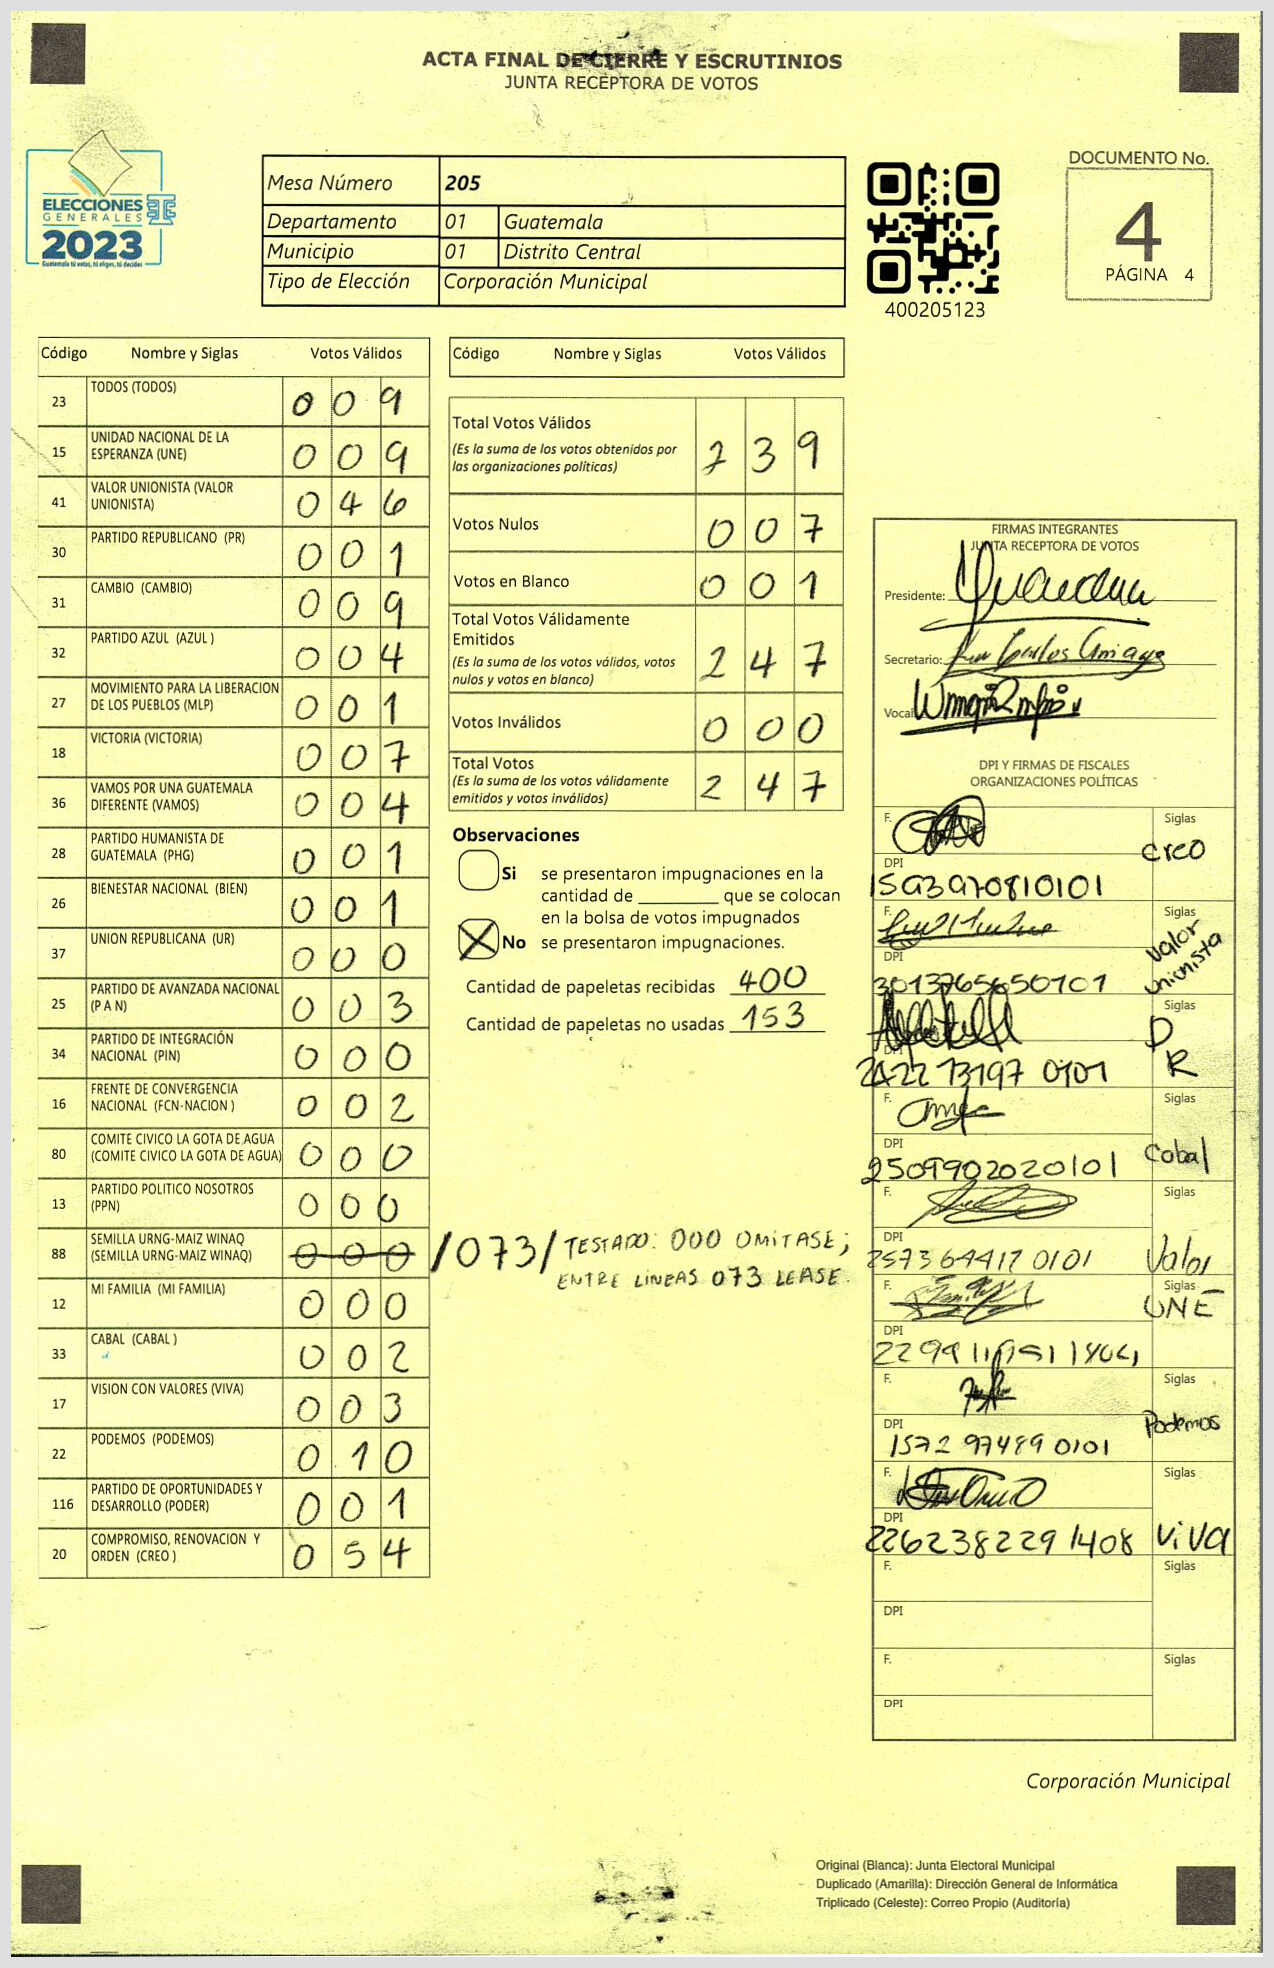 ACTA FINAL DE CIERRE Y ESCRUTINIOS
JUNTA RECEPTORA DE VOTOS
ELECCIONES
GENERALES
2023
Guatemala tú votas, tú eliges, tú decides
Mesa Número 205
Departamento 01 Guatemala
Municipio 01 Distrito Central
Tipo de Elección Corporación Municipal
400205123
DOCUMENTO No.
4
PÁGINA 4
Código Nombre y Siglas Votos Válidos
23 TODOS (TODOS) 0 0 9
15 UNIDAD NACIONAL DE LA ESPERANZA (UNE) 0 0 9
41 VALOR UNIONISTA (VALOR UNIONISTA) 0 4 6
30 PARTIDO REPUBLICANO (PR) 0 0 1
31 CAMBIO (CAMBIO) 0 0 9
32 PARTIDO AZUL (AZUL ) 0 0 4
27 MOVIMIENTO PARA LA LIBERACION DE LOS PUEBLOS (MLP) 0 0 1
18 VICTORIA (VICTORIA) 0 0 7
36 VAMOS POR UNA GUATEMALA DIFERENTE (VAMOS) 0 0 4
28 PARTIDO HUMANISTA DE GUATEMALA (PHG) 0 0 1
26 BIENESTAR NACIONAL (BIEN) 0 0 1
37 UNION REPUBLICANA (UR) 0 0 0
25 PARTIDO DE AVANZADA NACIONAL (P A N) 0 0 3
34 PARTIDO DE INTEGRACIÓN NACIONAL (PIN) 0 0 0
16 FRENTE DE CONVERGENCIA NACIONAL (FCN-NACION ) 0 0 2
80 COMITE CIVICO LA GOTA DE AGUA (COMITE CIVICO LA GOTA DE AGUA) 0 0 0
13 PARTIDO POLITICO NOSOTROS (PPN) 0 0 0
88 SEMILLA URNG-MAIZ WINAQ (SEMILLA URNG-MAIZ WINAQ) 0 0 0 /073/ TESTADO: 000 OMITASE;
ENTRE LINEAS 073 LEASE.
12 MI FAMILIA (MI FAMILIA) 0 0 0
33 CABAL (CABAL ) 0 0 2
17 VISION CON VALORES (VIVA) 0 0 3
22 PODEMOS (PODEMOS) 0 1 0
116 PARTIDO DE OPORTUNIDADES Y DESARROLLO (PODER) 0 0 1
20 COMPROMISO, RENOVACION Y ORDEN (CREO ) 0 5 4
Código Nombre y Siglas Votos Válidos
Total Votos Válidos 2 3 9
(Es la suma de los votos obtenidos por
las organizaciones políticas)
Votos Nulos 0 0 7
Votos en Blanco 0 0 1
Total Votos Válidamente
Emitidos 2 4 7
(Es la suma de los votos válidos, votos
nulos y votos en blanco)
Votos Inválidos 0 0 0
Total Votos 2 4 7
(Es la suma de los votos válidamente
emitidos y votos inválidos)
Observaciones
Si se presentaron impugnaciones en la
cantidad de ________ que se colocan
en la bolsa de votos impugnados
No se presentaron impugnaciones.
Cantidad de papeletas recibidas 400
Cantidad de papeletas no usadas 153
FIRMAS INTEGRANTES
JUNTA RECEPTORA DE VOTOS
Presidente:
Secretario:
Vocal
DPI Y FIRMAS DE FISCALES
ORGANIZACIONES POLÍTICAS
F. Siglas
creo
DPI
F. Siglas
Valor
unionista
DPI
3013765650101
Siglas
DPI
R
2422 73197 0101
F. Siglas
DPI
2509902020101
F. Siglas
DPI
2573 64417 0101 Valor
F. Siglas
UNE
DPI
F. Siglas
Podemos
DPI
1572 97489 0101
F. Siglas
DPI
226238229 1408 ViVA
F. Siglas
DPI
F. Siglas
DPI
Corporación Municipal
Original (Blanca): Junta Electoral Municipal
Duplicado (Amarilla): Dirección General de Informática
Triplicado (Celeste): Correo Propio (Auditoría)